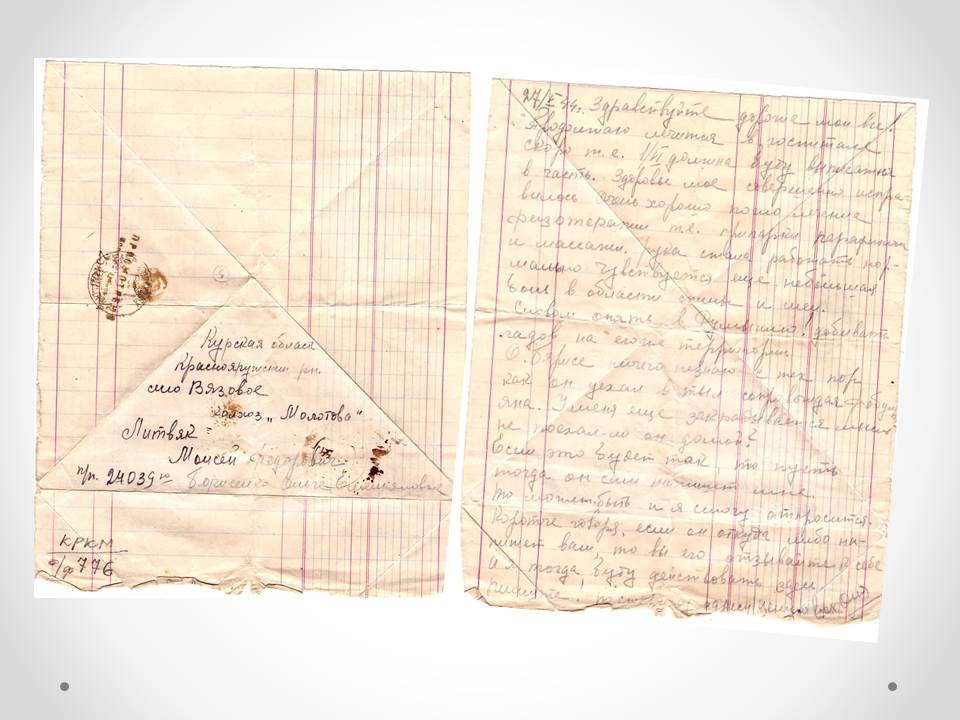 Курская област
Краснояружский рн.
село Вязовое
колхоз "Молотово"
Литвяк
Моисей Фёдорович
п/п. 24039 ю Борисенко Ольге Емельяновне
КРКМ
о/ф 776
27/V 44г. Здравствуйте дорогие мои все!
Продолжаю лечится в госпитале
скоро т.е. 1/VI должна буду выписатся
в часть. Здоровье мое совершенно испра
вилось очень хорошо лечение
физотерапии т.е. припарки парафином
и массажи. Рука стала работать нор-
мально чувствуется еще небольшая
боль в области спины и шеи.
Словом опять в Румынию добивать
гадов на его территории
О Борисе ничего незнаю с тех пор
как он уехал в тыл
яна. У меня еще закрадывается мысль
не поехал-ли он домой?
Если это будет так, то пусть
тогда он сам напишет мне.
то может быть и я смогу отпросится.
Короче говоря, если он откуда либо на-
пишет вам, то вы его отзывайте к себе
и я тогда буду действовать
пишите!